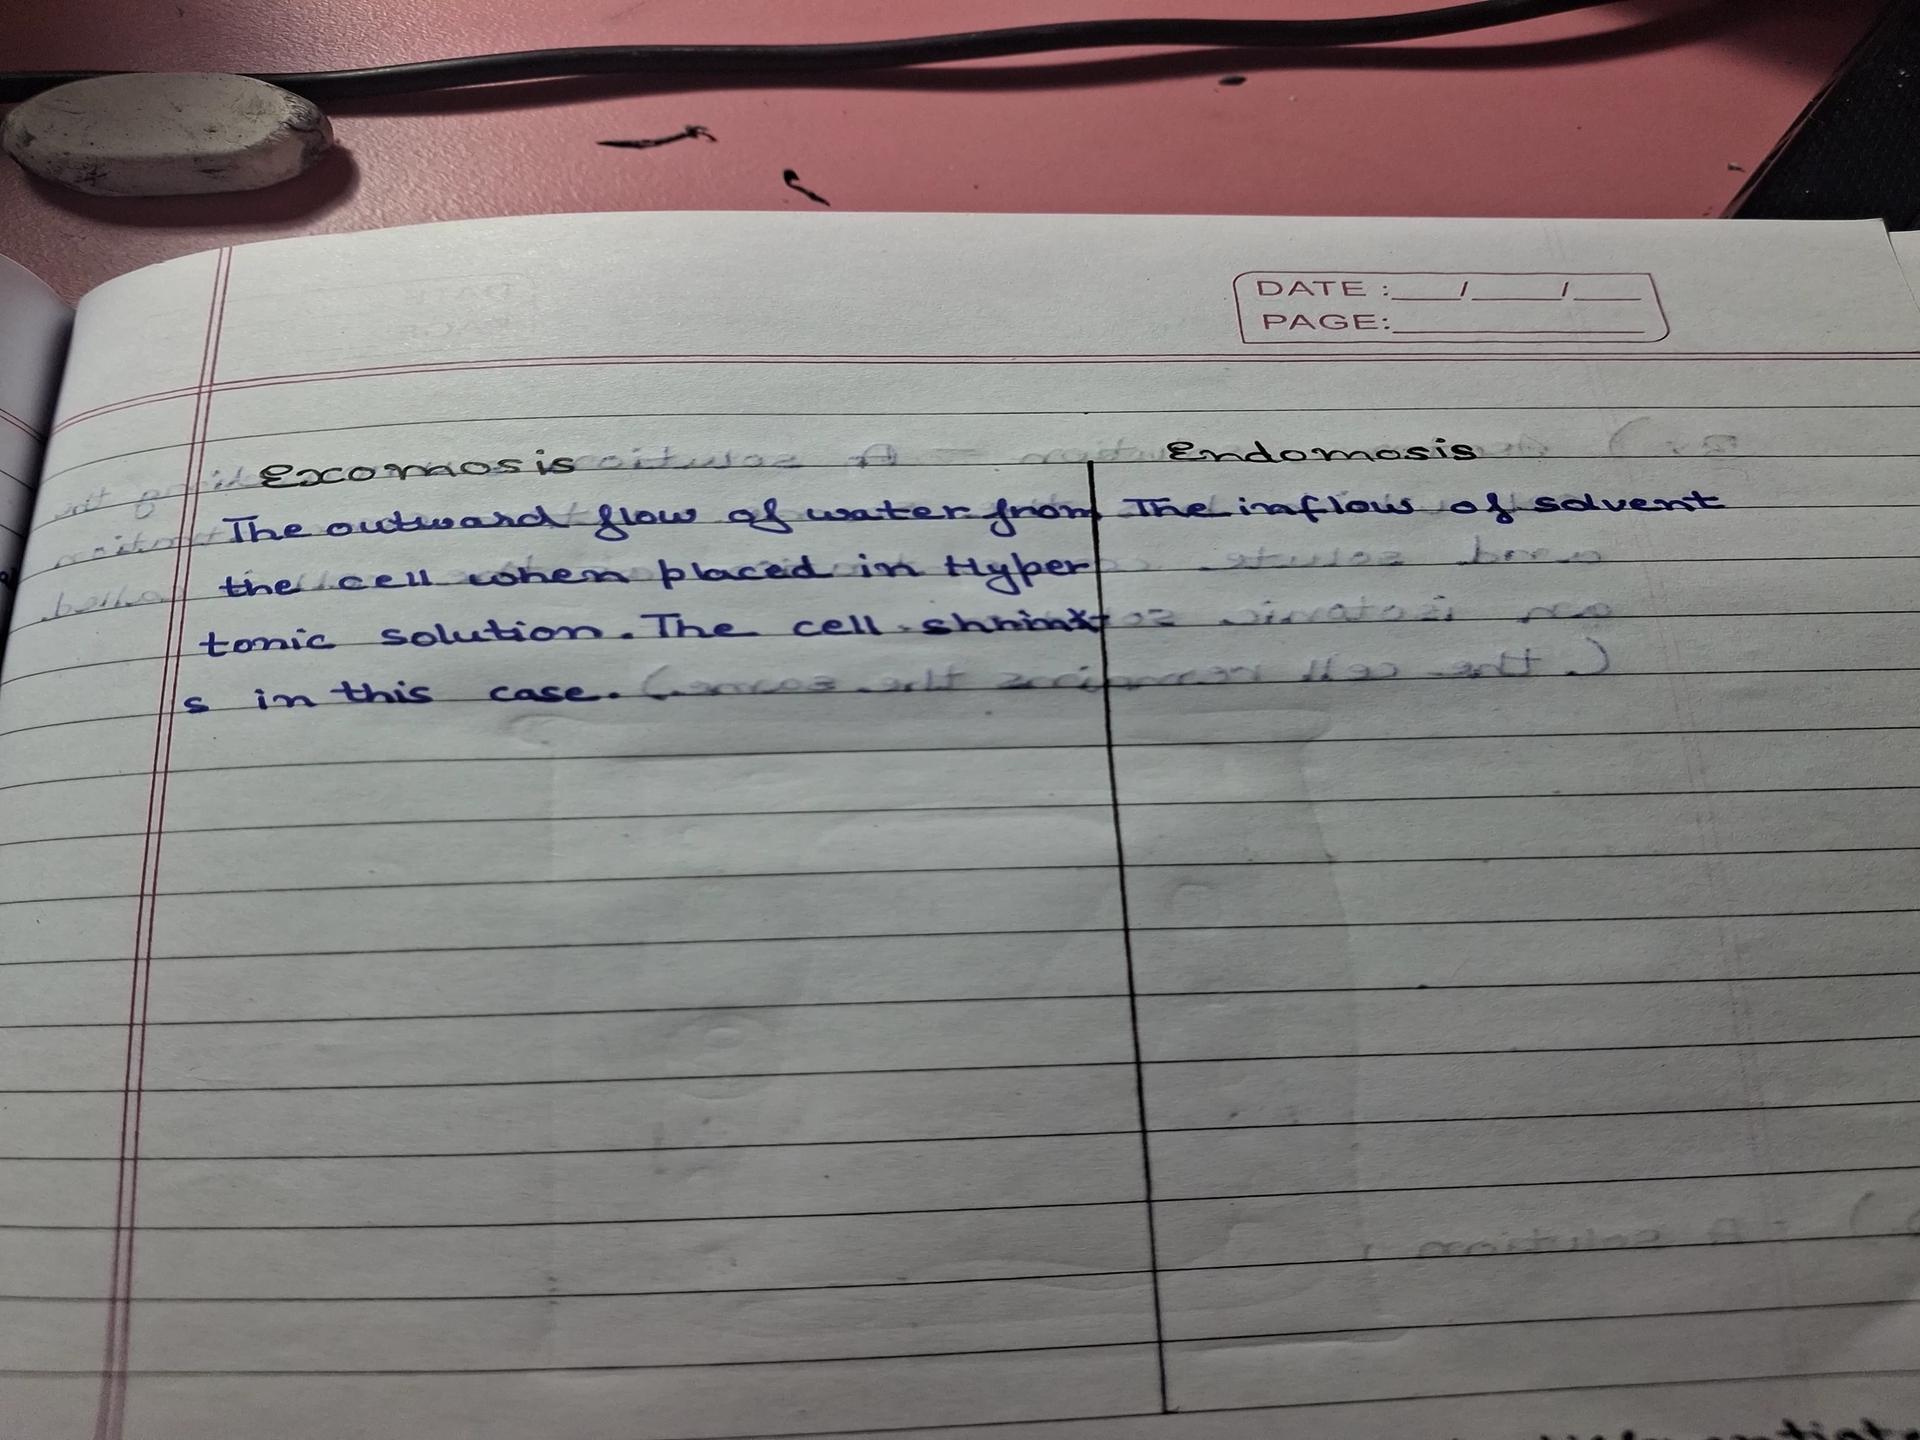 DATE : / /
PAGE:
Exomosis
The outward flow of water from
the cell when placed in Hyper
tonic solution. The cell shrink
s in this case.
Endomosis
The inflow of solvent